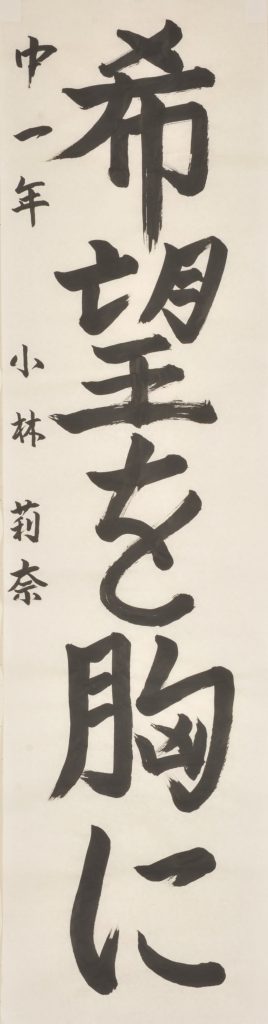 希望を胸に
中一年 小林 莉奈